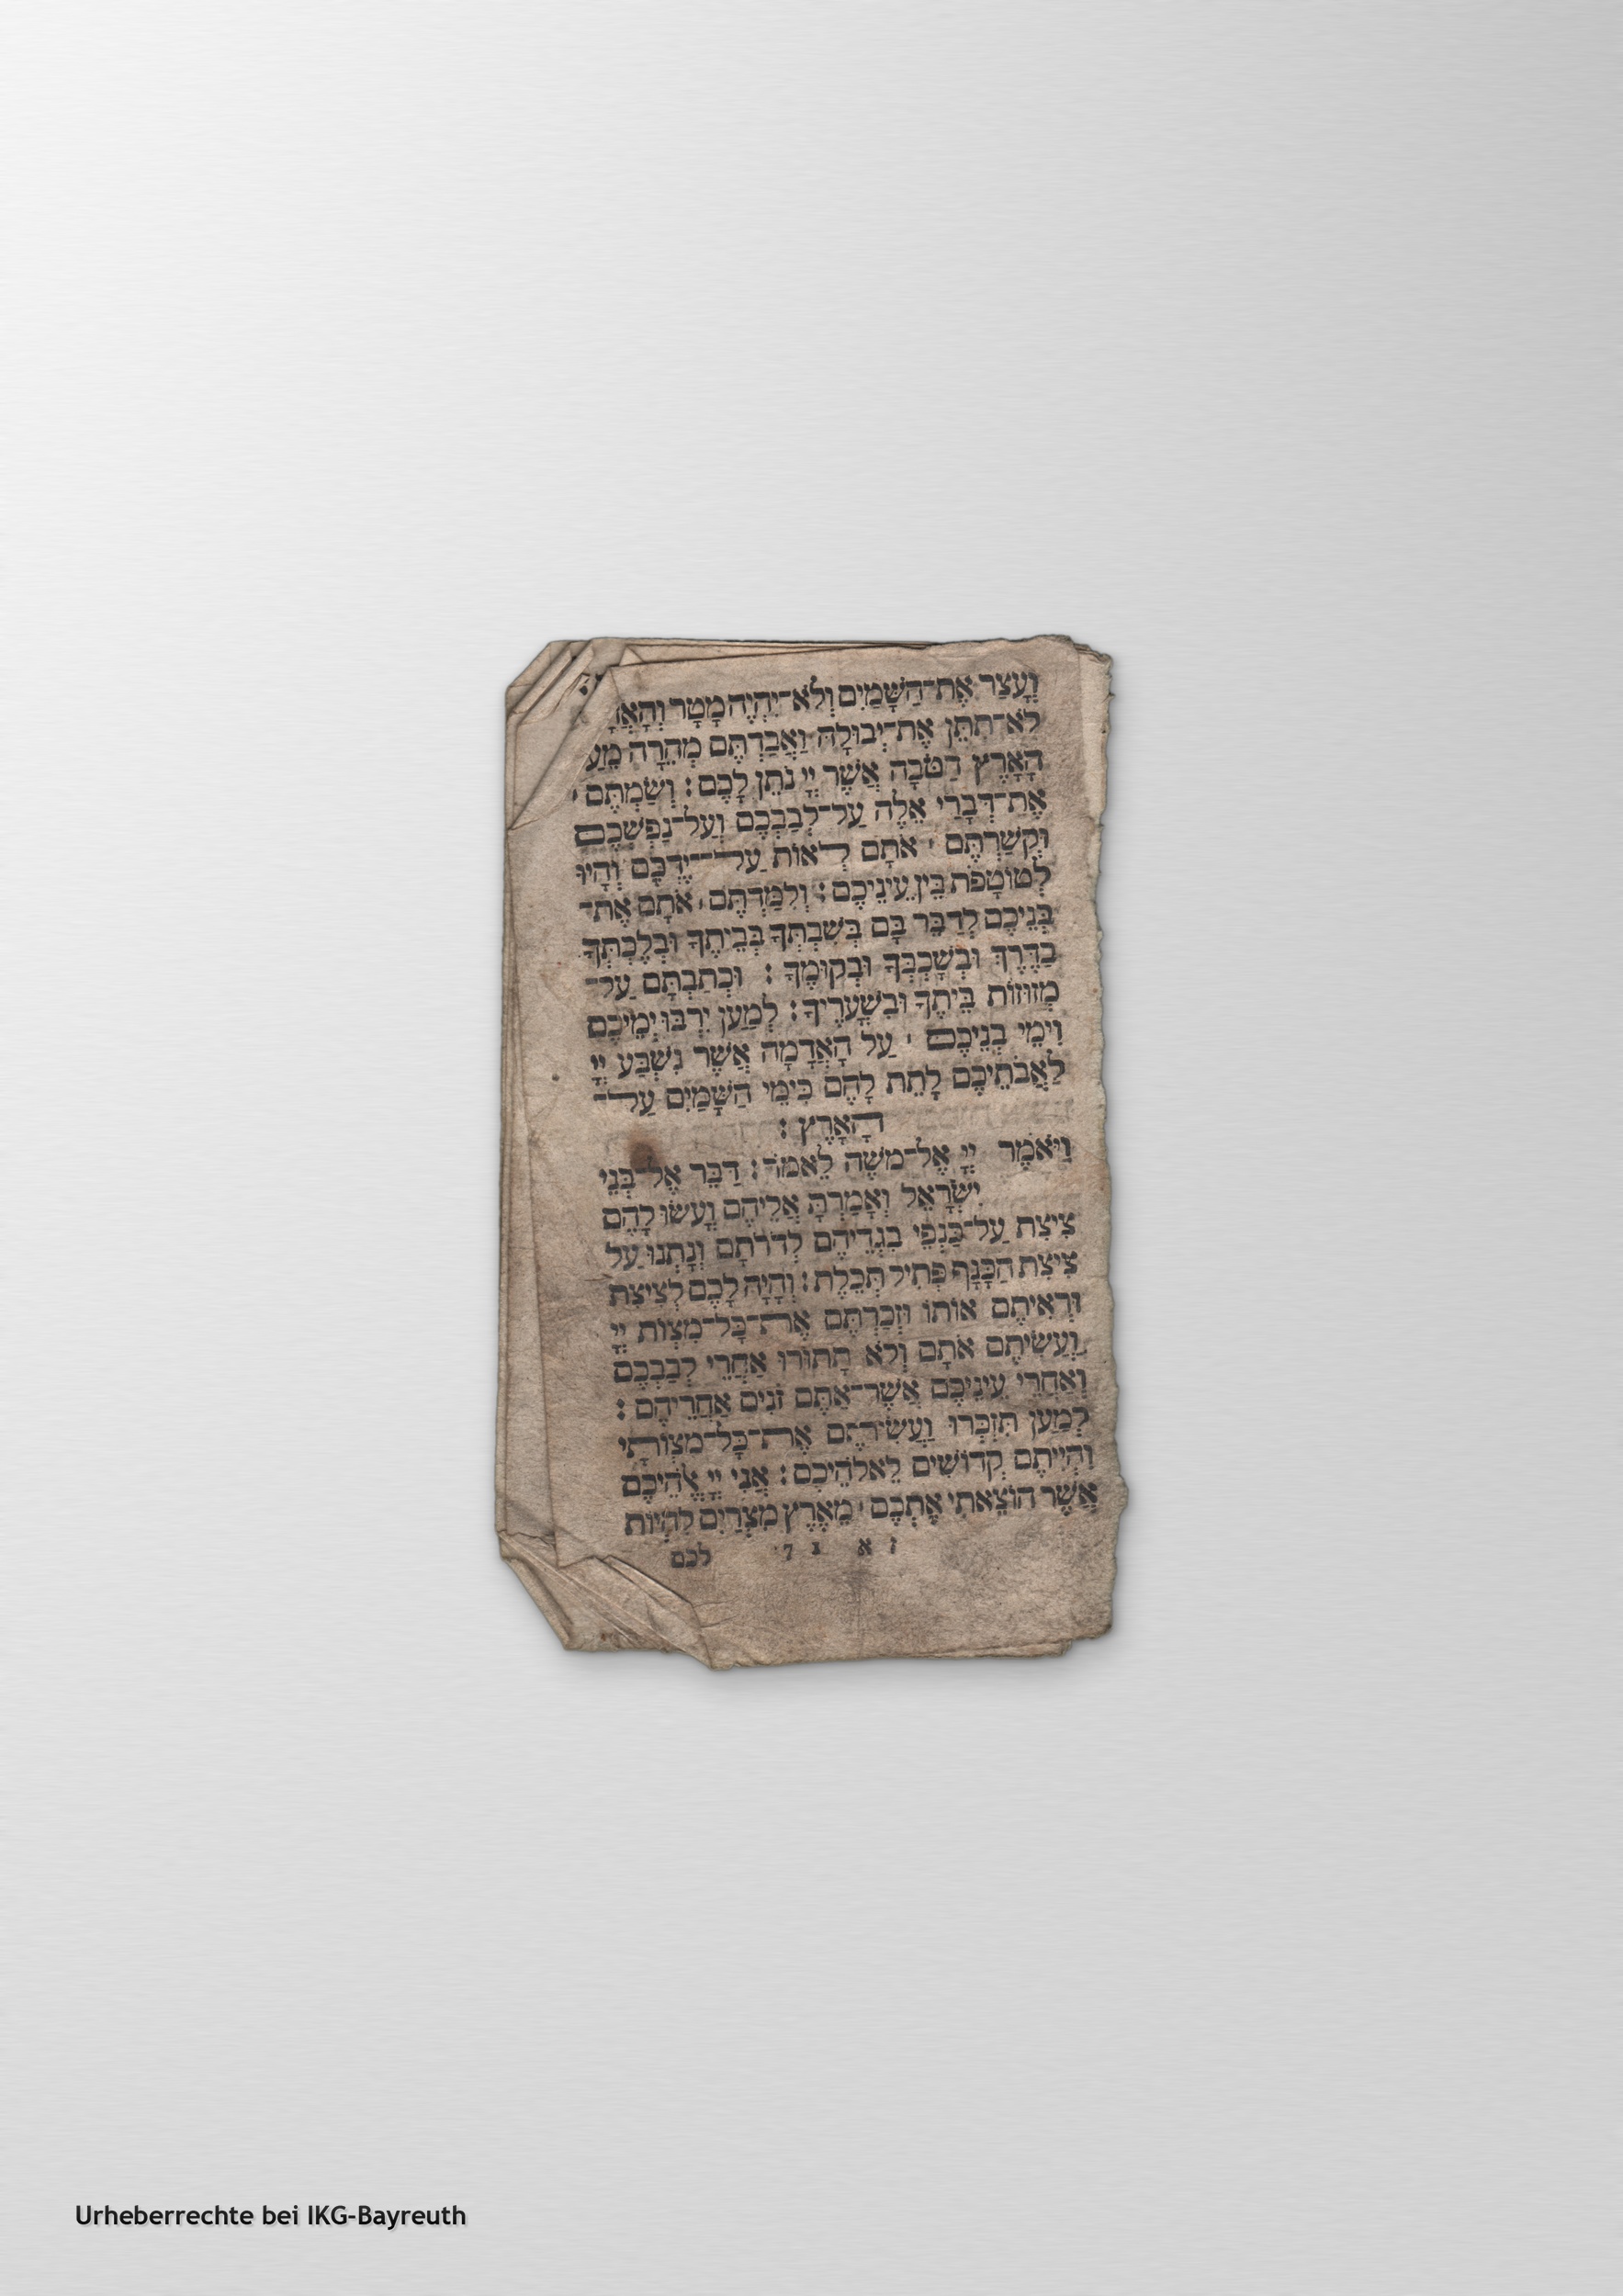 וְעָצַר אֶת־הַשָּׁמַיִם וְלֹא־יִהְיֶה מָטָר
לֹא־תִתֵּן אֶת־יְבוּלָהּ וַאֲבַדְתֶּם מְהֵרָה מֵעַ
הָאָרֶץ הַטֹּבָה אֲשֶׁר יְיָ נֹתֵן לָכֶם : וְשַׂמְתֶּם
אֶת־דְּבָרַי אֵלֶּה עַל־לְבַבְכֶם וְעַל־נַפְשְׁכֶם
וּקְשַׁרְתֶּם ׳ אֹתָם לְאוֹת עַל־יֶדְכֶם וְהָיוּ
לְטוֹטָפֹת בֵּין עֵינֵיכֶם : וְלִמַּדְתֶּם ׳ אֹתָם אֶת־
בְּנֵיכֶם לְדַבֵּר בָּם בְּשִׁבְתְּךָ בְּבֵיתֶךָ וּבְלֶכְתְּךָ
בַדֶּרֶךְ וּבְשָׁכְבְּךָ וּבְקוּמֶךָ : וּכְתַבְתָּם עַל־
מְזוּזוֹת בֵּיתֶךָ וּבִשְׁעָרֶיךָ : לְמַעַן יִרְבּוּ יְמֵיכֶם
וִימֵי בְנֵיכֶם ׳ עַל הָאֲדָמָה אֲשֶׁר נִשְׁבַּע יְיָ
לַאֲבֹתֵיכֶם לָתֵת לָהֶם כִּימֵי הַשָּׁמַיִם עַל־
הָאָרֶץ :
וַיֹּאמֶר יְיָ אֶל־מֹשֶׁה לֵּאמֹר : דַּבֵּר אֶל־בְּנֵי
יִשְׂרָאֵל וְאָמַרְתָּ אֲלֵיהֶם וְעָשׂוּ לָהֶם
צִיצִת עַל־כַּנְפֵי בִגְדֵיהֶם לְדֹרֹתָם וְנָתְנוּ עַל
צִיצִת הַכָּנָף פְּתִיל תְּכֵלֶת : וְהָיָה לָכֶם לְצִיצִת
וּרְאִיתֶם אוֹתוֹ וּזְכַרְתֶּם אֶת־כָּל־מִצְוֹת יְיָ
וַעֲשִׂיתֶם אֹתָם וְלֹא תָתוּרוּ אַחֲרֵי לְבַבְכֶם
וְאַחֲרֵי עֵינֵיכֶם אֲשֶׁר־אַתֶּם זֹנִים אַחֲרֵיהֶם :
לְמַעַן תִּזְכְּרוּ וַעֲשִׂיתֶם אֶת־כָּל־מִצְוֹתָי
וִהְיִיתֶם קְדוֹשִׁים לֵאלֹהֵיכֶם : אֲנִי יְיָ אֱלֹהֵיכֶם
אֲשֶׁר הוֹצֵאתִי אֶתְכֶם ׳ מֵאֶרֶץ מִצְרַיִם לִהְיוֹת
לכם
Urheberrechte bei IKG-Bayreuth